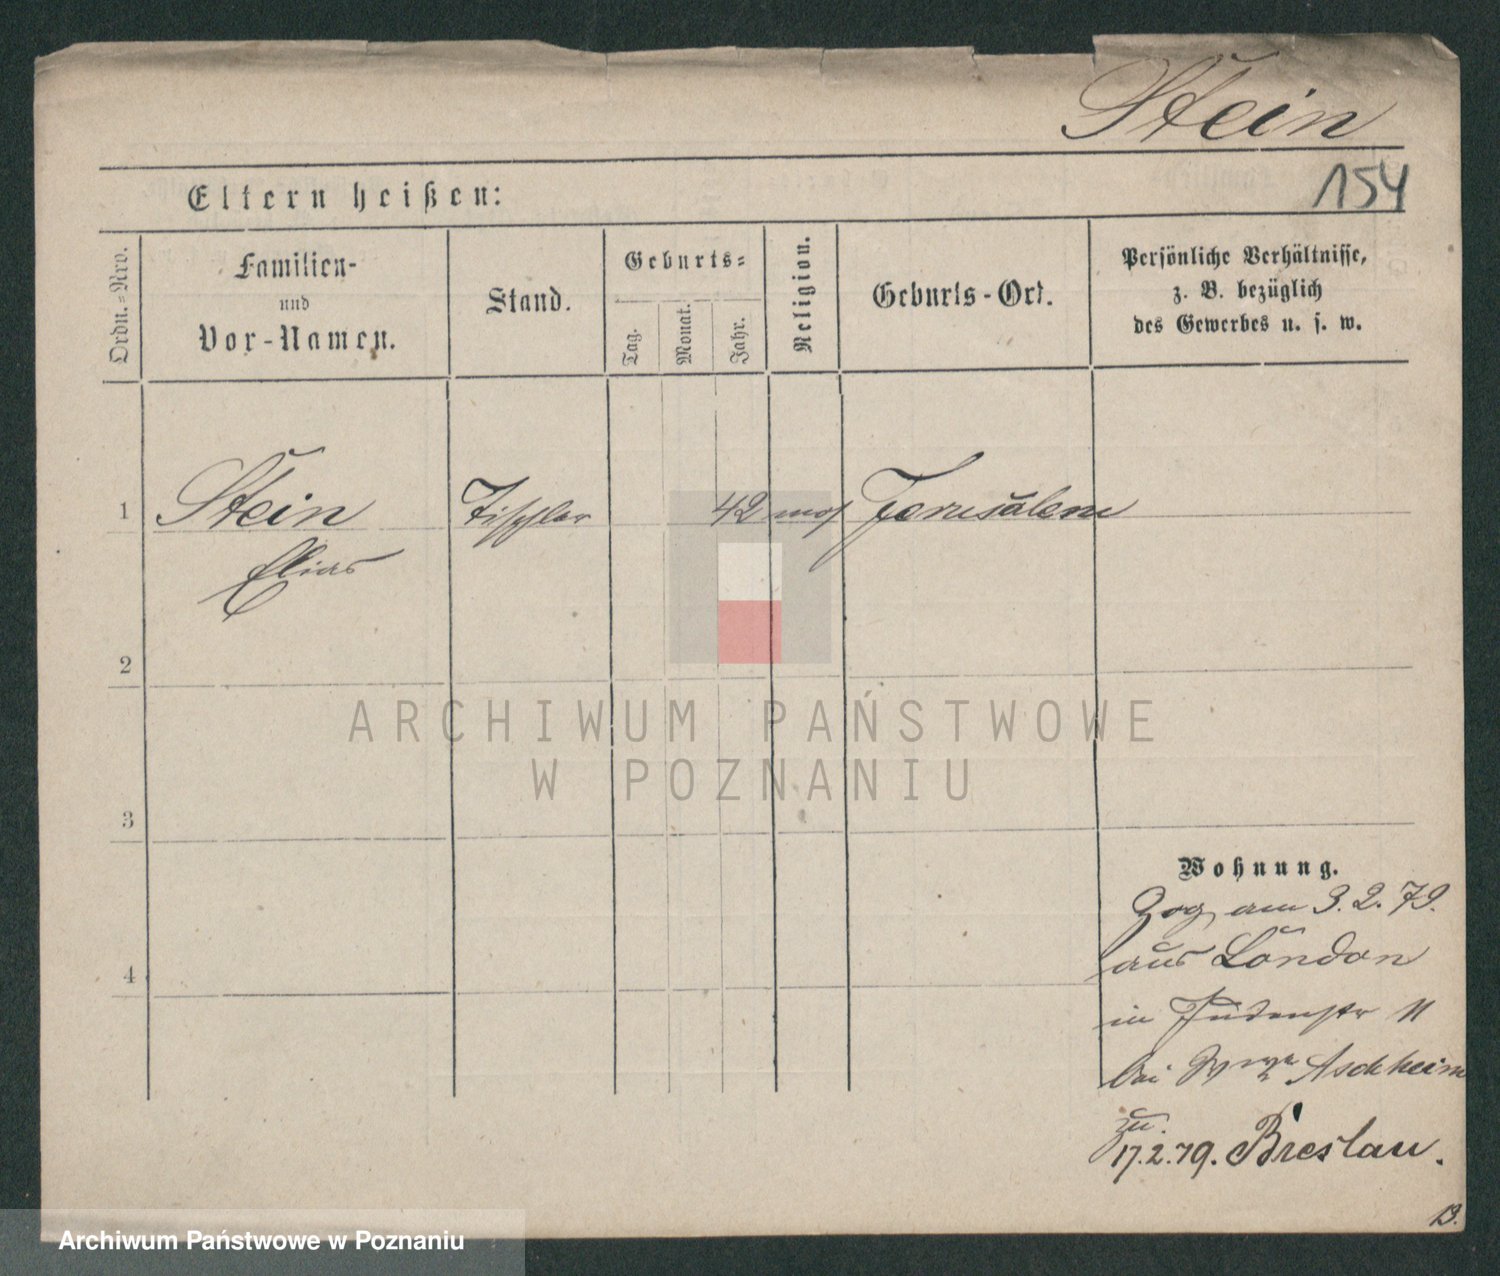 Stein
154
Eltern heißen:
Ordn.=Nro.
Familien-
und
Vor-Namen.
Stand.
Geburts=
Tag.
Monat.
Jahr.
Religion.
Geburts-Ort.
Persönliche Verhältnisse,
z. B. bezüglich
des Gewerbes u. s. w.
1 Stein Tischler 42 mos Jerusalem
Elias
2
3
4
ARCHIWUM PAŃSTWOWE
W POZNANIU
Wohnung.
Zog am 3. 2. 79.
aus London
in Judenstr 11
bei Aschheim
zu.
17.2.79. Breslau.
Archiwum Państwowe w Poznaniu